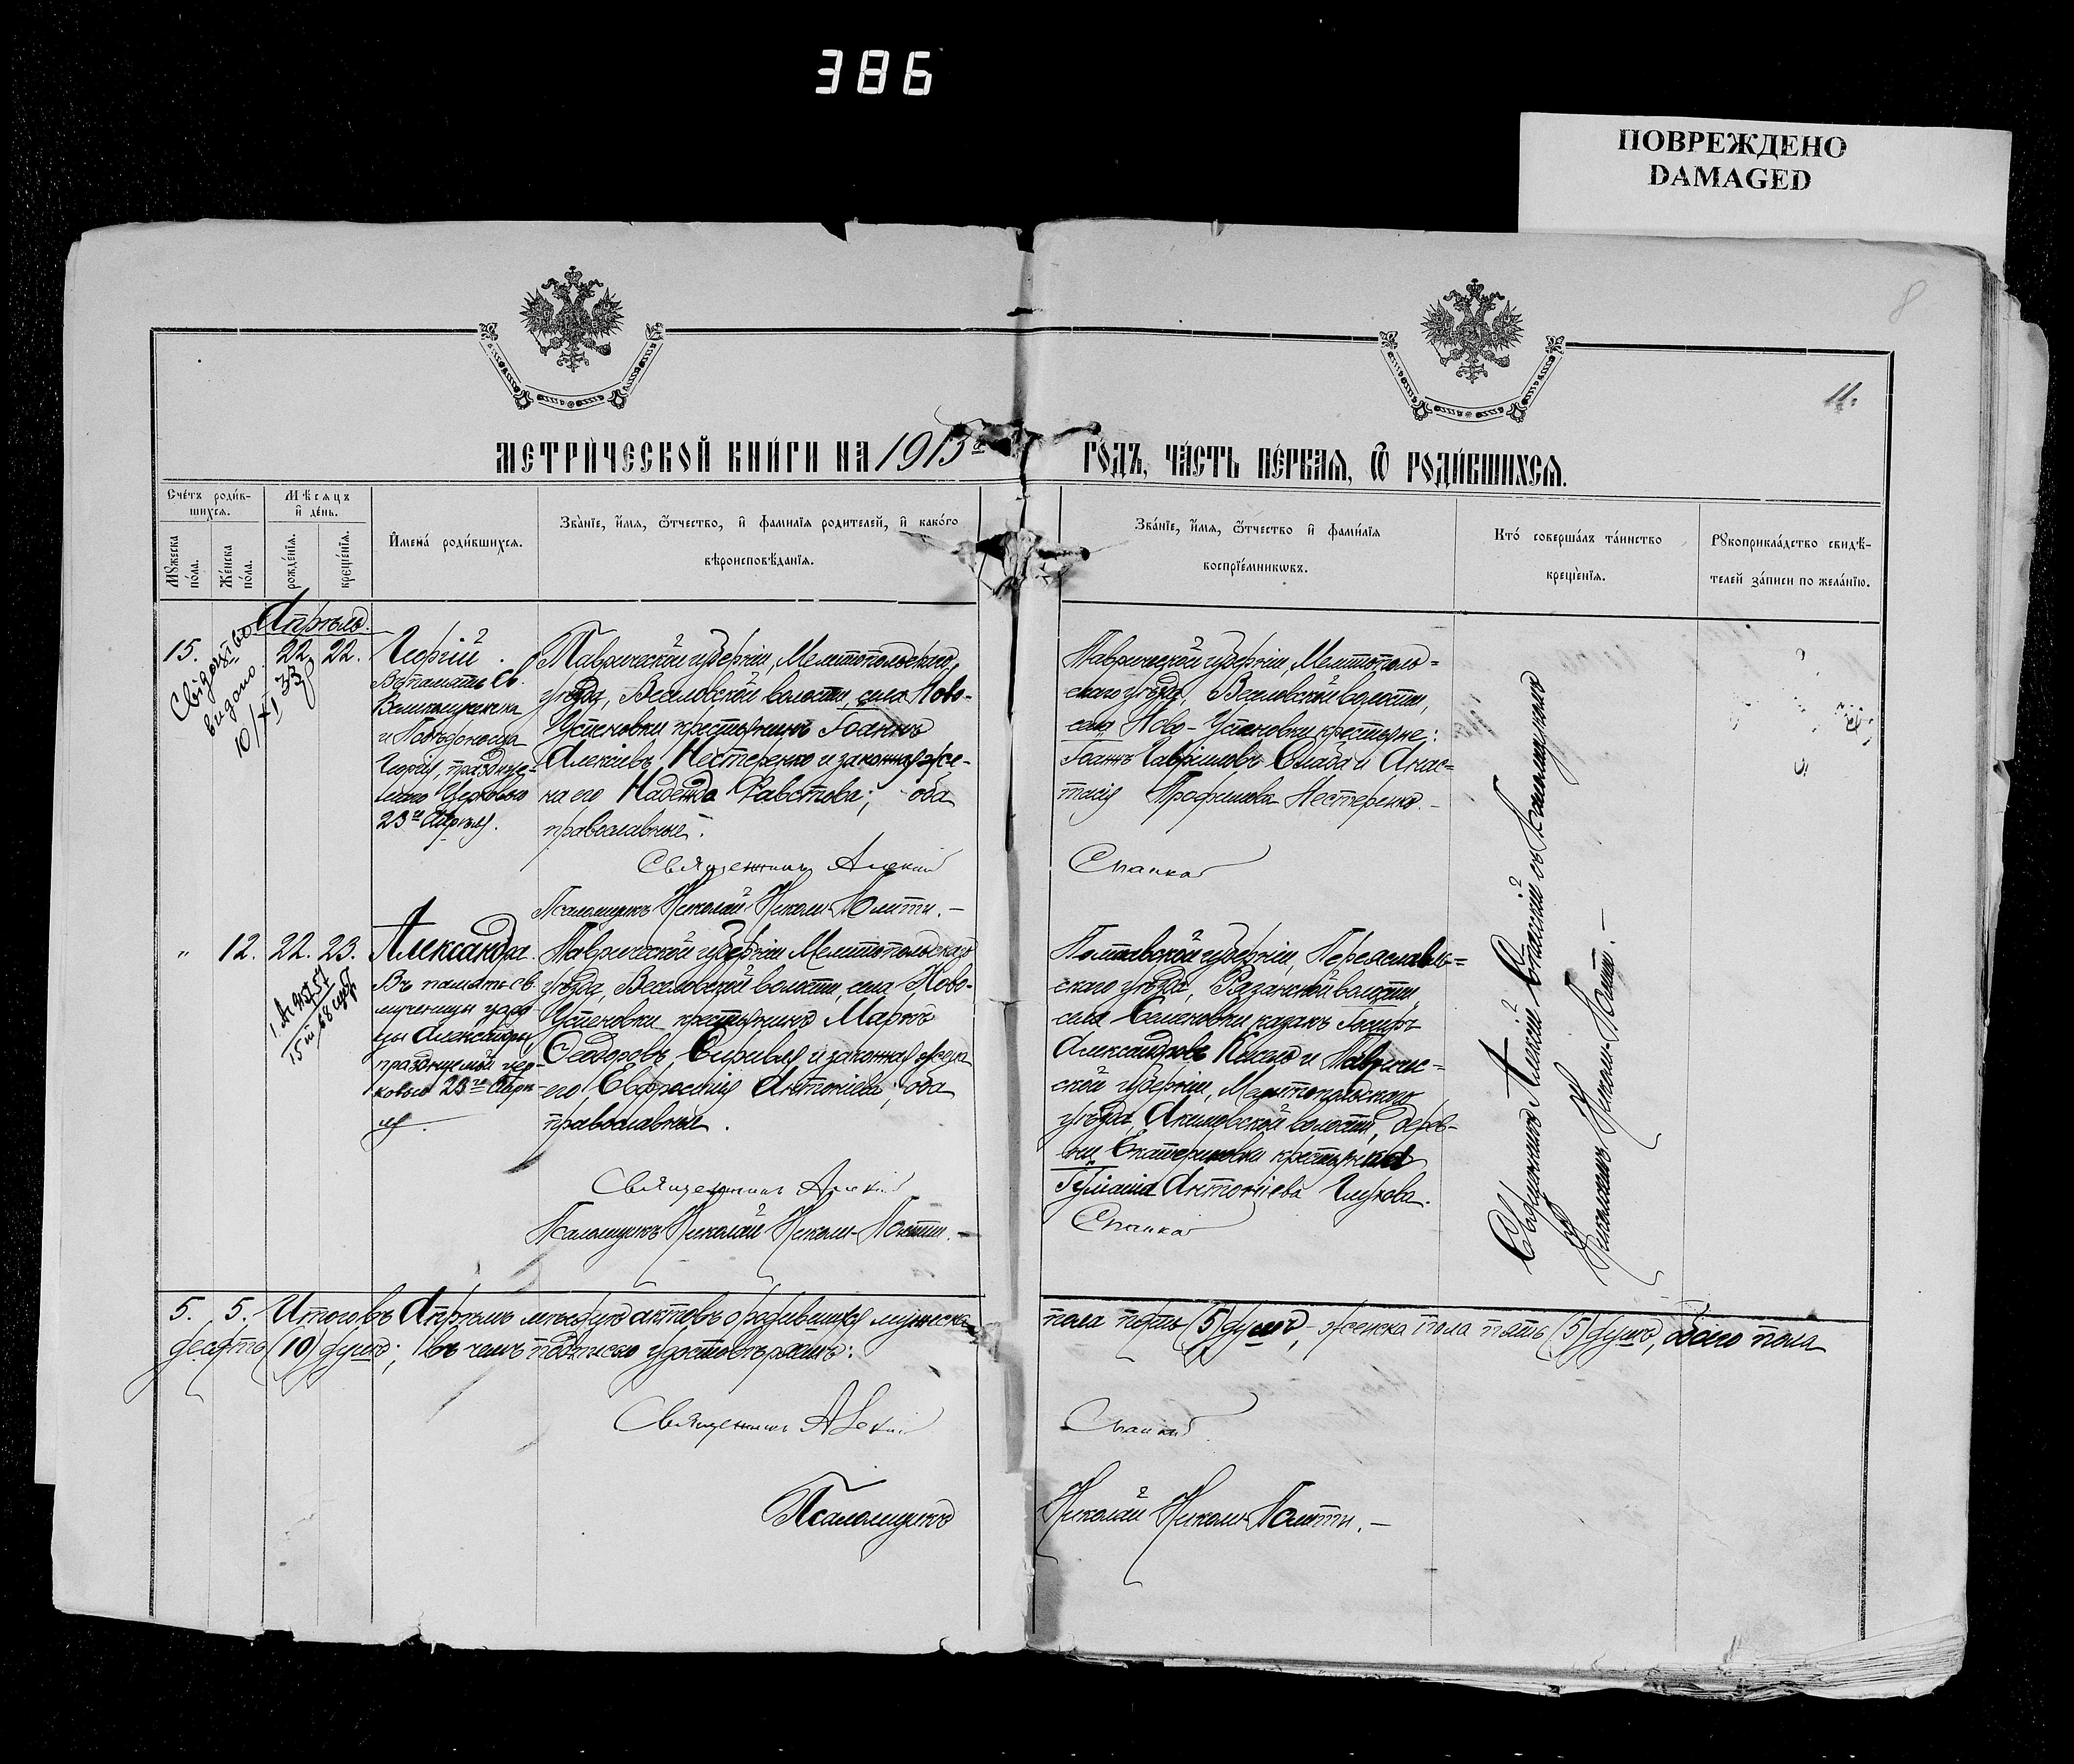 386
ПОВРЕЖДЕНО
DAMAGED
8
11.
МЕТРИЧЕСКОЙ КНИГИ НА 1913 ГОДЪ, ЧАСТЬ ПЕРВАЯ, Ѿ РОДИВШИХСЯ.
Счетъ родив-
шихся.
Мѣсяцъ
и день.
Мужеска
пола.
Женска
пола.
рожденія.
крещенія.
Имена родившихся.
Званіе, имя, ѿтчество, и фамилія родителей, и какого
вѣроисповѣданія.
Званіе, имя, ѿтчество и фамилія
воспріемниковъ.
Кто совершалъ таинство
крещенія.
Рукоприкладство свидѣ-
телей записи по желанію.
Апрѣль.
15. 22. 22.
Свідоцтво
видано
10/XI 33
Георгій.
Въ память Св.
Великомученика
и Побѣдоносца
Георгія, праздну-
емаго Церковью
23го Апрѣля.
Таврической губерніи, Мелитопольскаго
уѣзда, Веселовской волости, села Ново-
Успеновки крестьянинъ Іоаннъ
Алексіевъ Нестеренко и законная же-
на его Надежда Фавстова; оба
православные.
Священникъ Алексій
Псаломщикъ Николай
Таврической губерніи, Мелитополь-
скаго уѣзда, Веселовской волости,
села Ново-Успеновки крестьяне:
Іоаннъ Гавріиловъ и Анас-
тасія Трофимова Нестеренко.-
Спасскій
" 12. 22. 23.
Александра
Въ память св.
мученицы цари-
цы Александры,
празднуемой цер-
ковью 23го Апрѣ-
ля.
Таврической губерніи Мелитопольскаго
уѣзда, Веселовской волости, села Ново-
Успеновки крестьянинъ Маркъ
Ѳеодоровъ и законная жена
его Евфросинія Антоніева; оба
православные.
Священникъ Алексій
Псаломщикъ Николай
Полтавской губерніи, Переяславль-
скаго уѣзда, волости,
села Семеновки казакъ
Александровъ и Тавричес-
кой губерніи, Мелитопольскаго
уѣзда, Акимовской волости, дерев-
ни Екатериновки крестьянка
Антоніева
Спасскій
Священникъ Алексій Спасскій съ Псаломщикомъ
5. 5. Итого въ Апрѣлѣ мѣсяцѣ актовъ о родившихся мужеска пола пять (5) душъ, женска пола пять (5) душъ, обоего пола
десять (10) душъ; въ чемъ подписью удостовѣряемъ:
Священникъ Алексій Спасскій
Псаломщикъ Николай